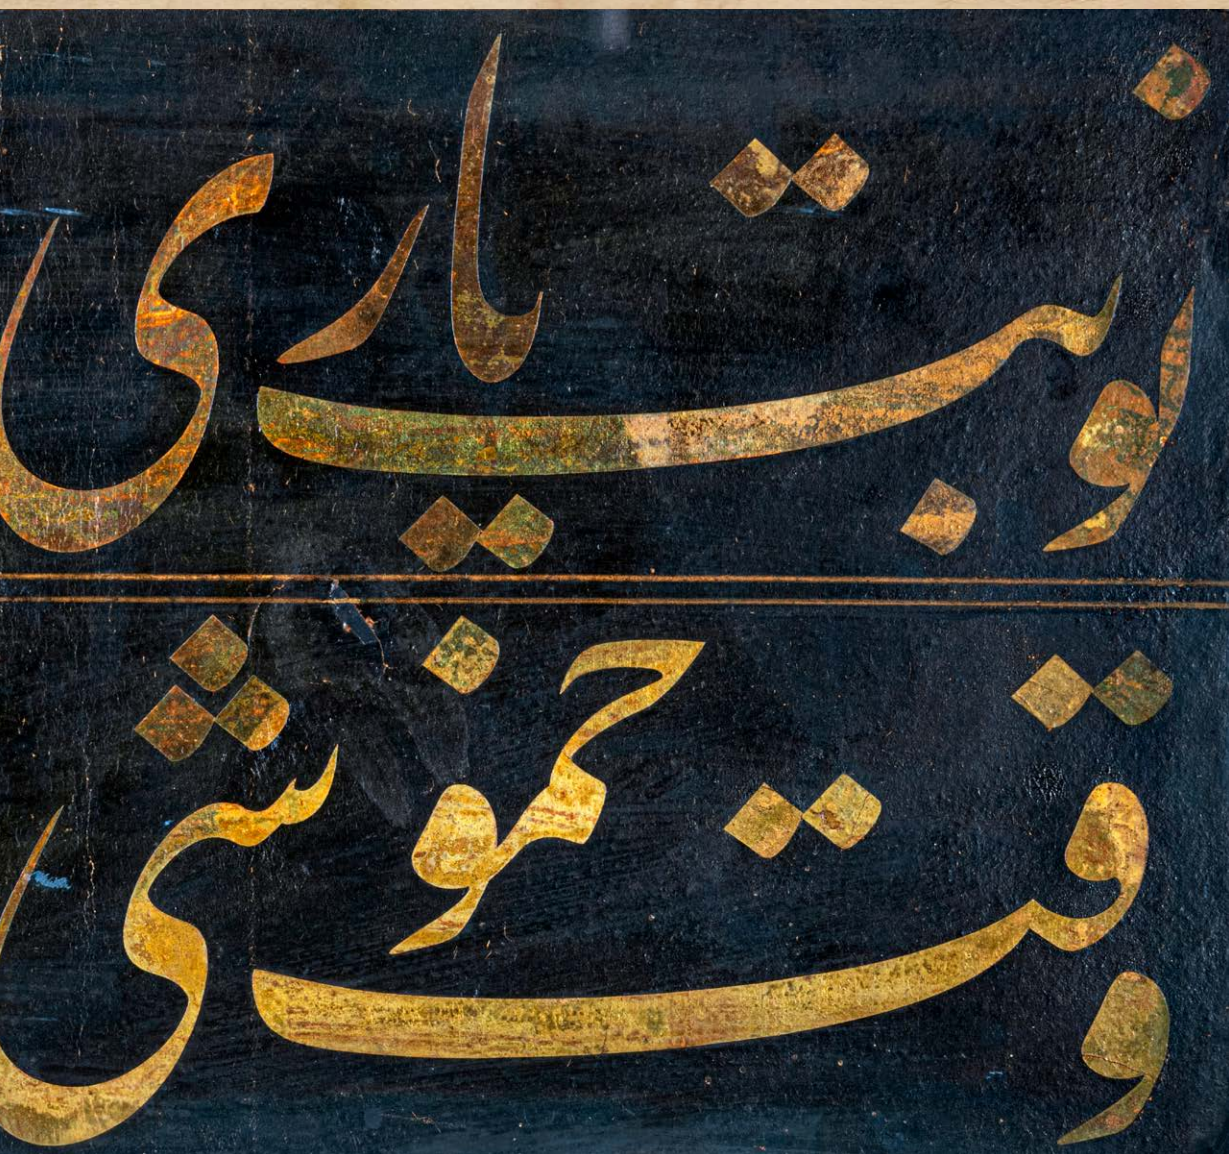 نوبت یاری
وقت خموشی